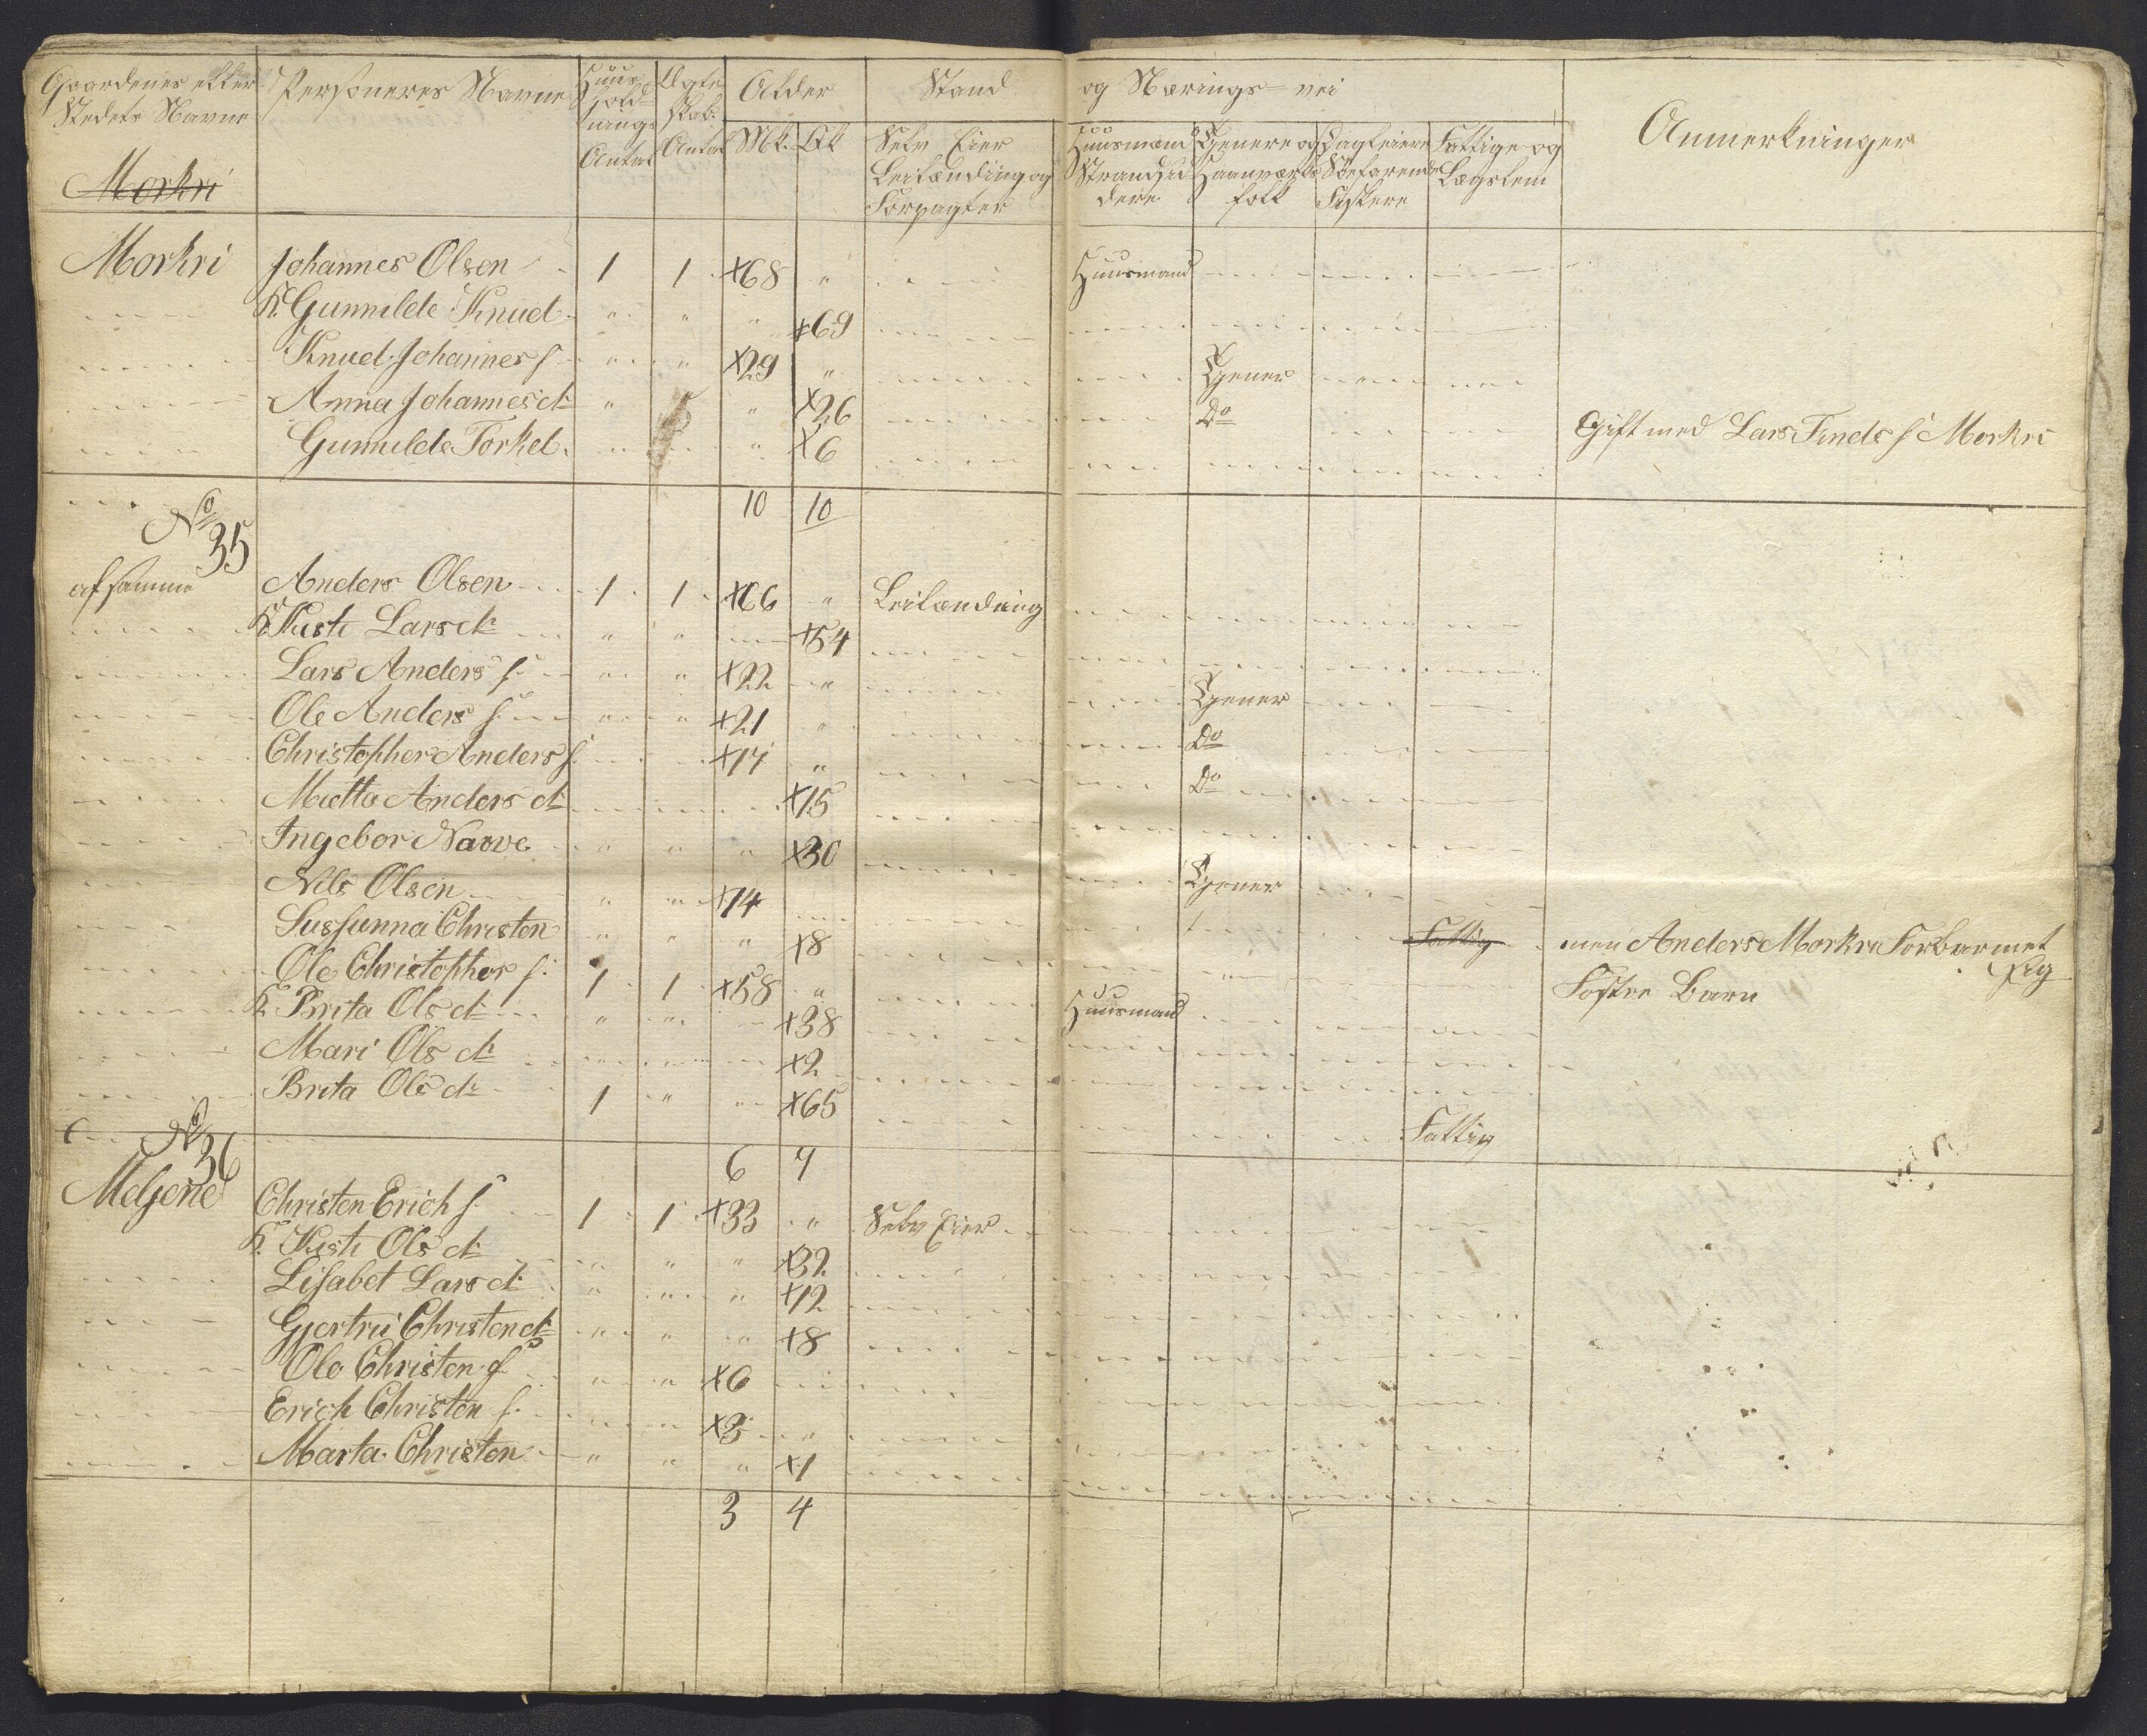 Gaardenes eller Personeres Navne Huus Ægte Alder Stand og Nærings- vei Anmerkninger
Stedets Navne hold- skab.
nings Antal Mk. Qk Selv Eier Huusmand Tjenere og Fattige og
Antal Leilænding og Strandsid Haanværks Søefarende Lægslem
Morkri Forpagter dere folk Fiskere
Morkri Johannes Olsen 1 1 x68 " Huusmand
K. Gunnilde Knud " " " x69
Knud Johannes s. " " x29 " Tjener
Anna Johannes d: " " x26 Do
Gunnilde Torkel. " x6 Gift med Lars Finds s. Morkri
10 10
No 35
af samme Anders Olsen 1 1 x66 " Leilænding
K. Kisti Lars d: " " x54
Lars Anders s. " " x22 " Tjener
Ole Anders s. " " x21 " Do
Christopher Anders s. x17 " Do
Mætta Anders d: x15
Ingebor Narve " " " x30 Tjener
Nils Olsen " " x14
Sussunna Christen " " " x8 Fattig men Anders Morkri Forbarmet
sig
Ole Christopher s. 1 1 x58 " Huusmand Fostre Barn
K. Brita Ols d: " " x38
Mari Ols d: x2
Brita Ols d: 1 " " x65 Fattig
No 36 6 7
Melheme Christen Erich s. 1 1 x33 " Selv Eier
K. Kisti Ols d: " " " x32
Lisabet Lars d: " " " x12
Gjertru Christen d: " " " x8
Ole Christen s. " " x6
Erich Christen s. x3 "
Marta Christen " " " x1
3 4